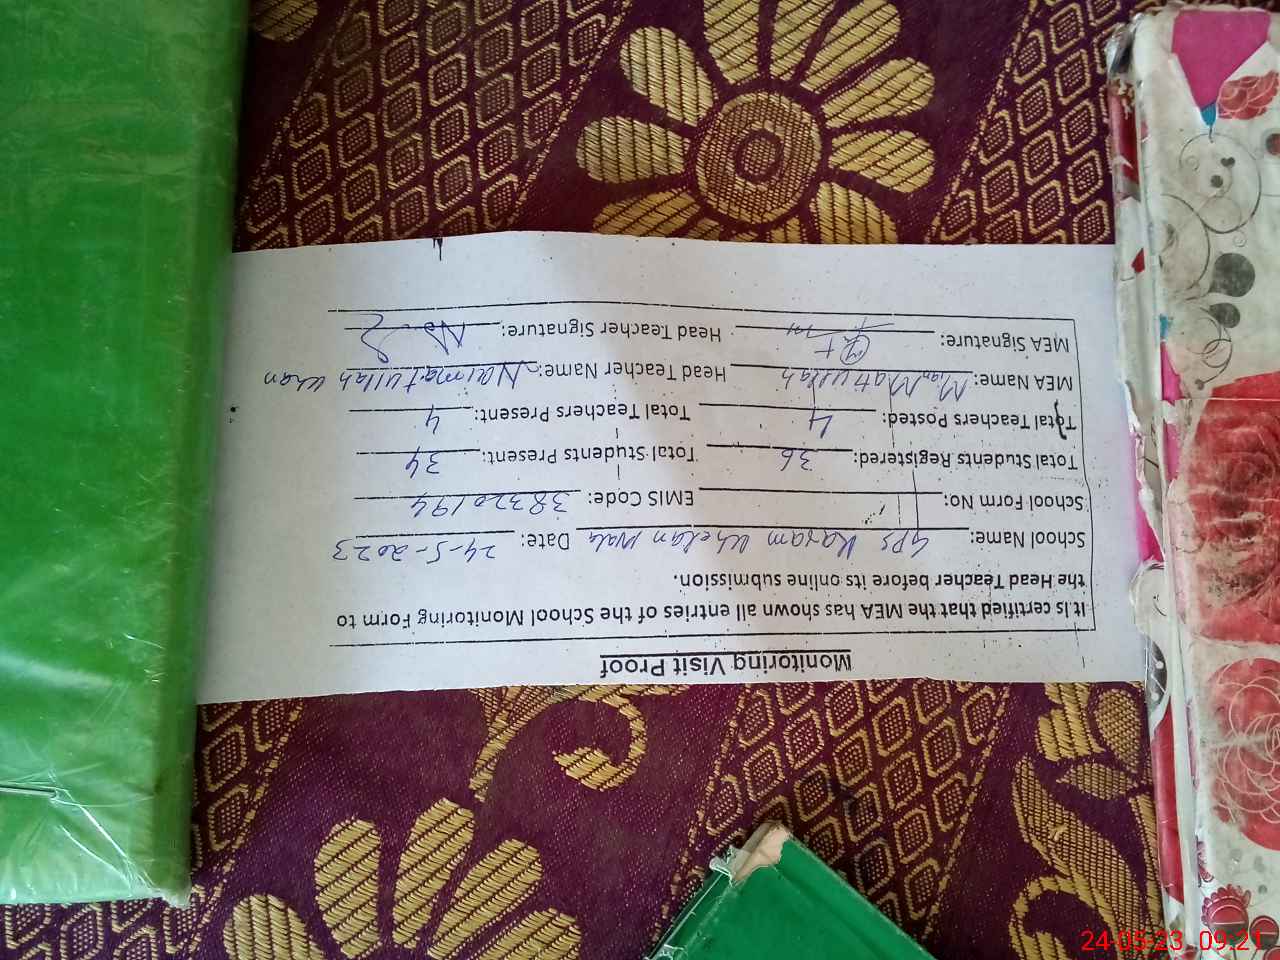 Monitoring Visit Proof
It is certified that the MEA has shown all entries of the School Monitoring Form to
the Head Teacher before its online submission.
School Name: GPS Karam Khelan Wala Date: 24-5-2023
School Form No: EMIS Code: 38320194
Total Students Registered: 36 Total Students Present: 34
Total Teachers Posted: 4 Total Teachers Present: 4
MEA Name: Mian Matiullah Head Teacher Name: Naimatullah Khan
MEA Signature: Head Teacher Signature:
24-05-23 09:21